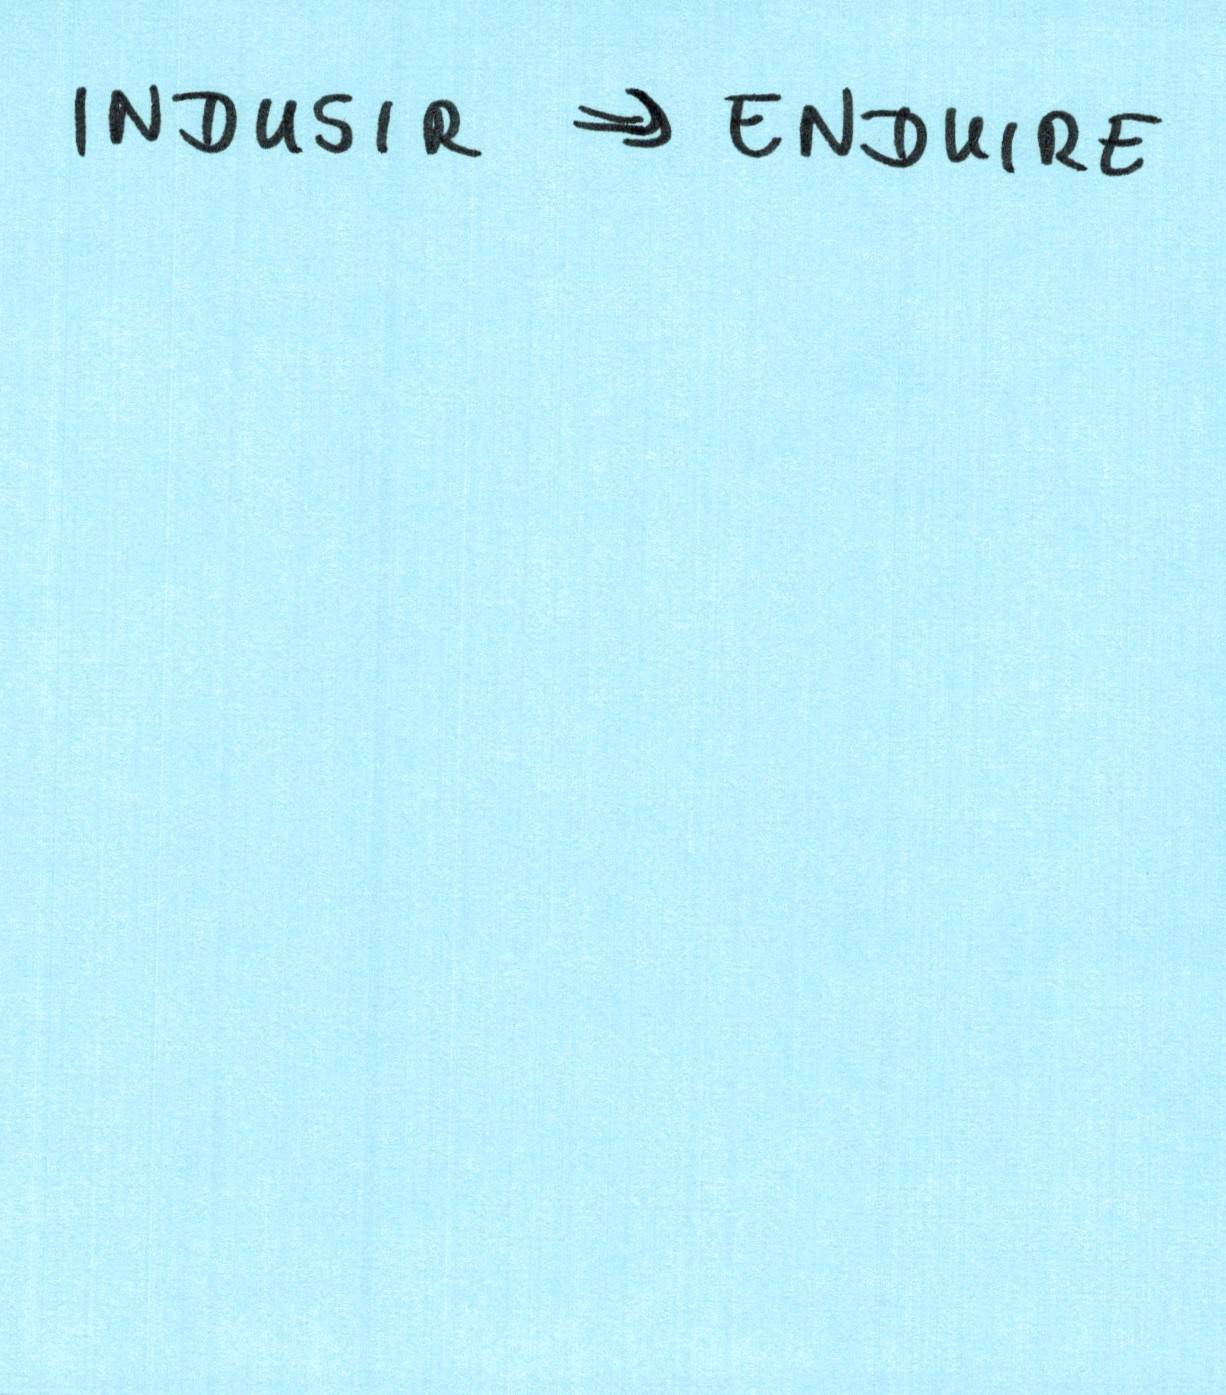 INDUSIR ⇒ ENDUIRE